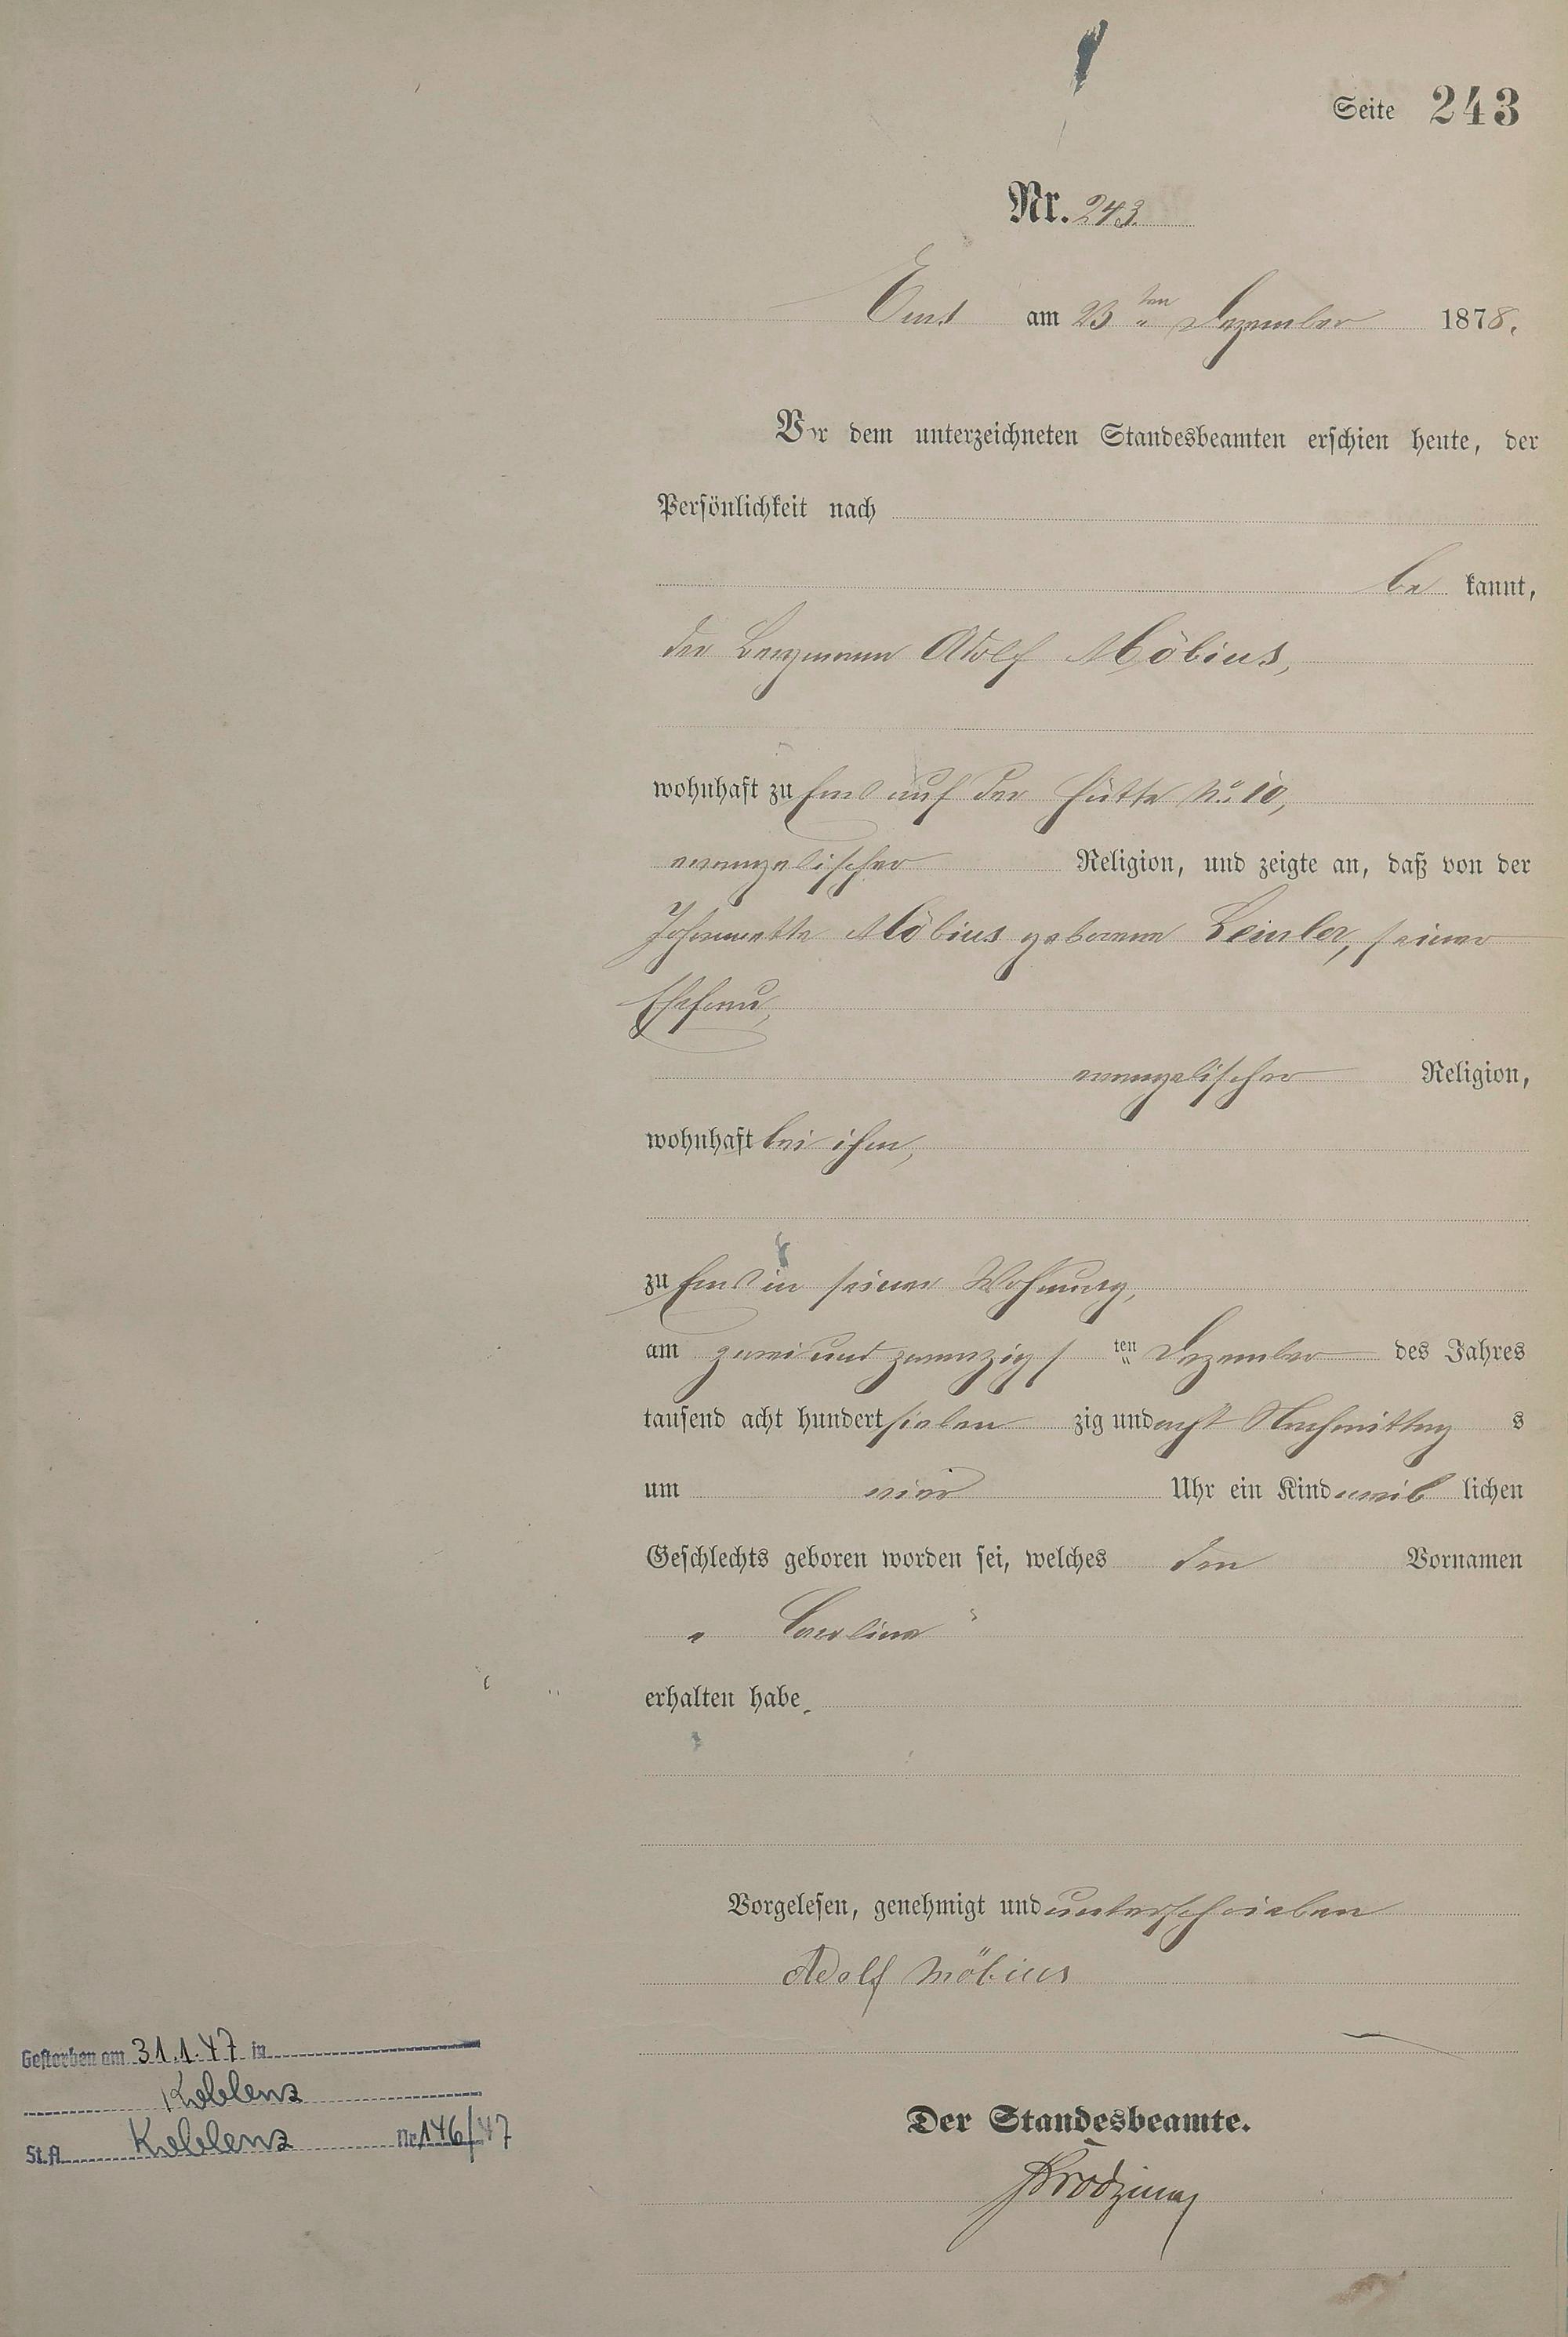 Seite 243
Nr. 243.
Ems am 23ten Dezember 1878.
Vor dem unterzeichneten Standesbeamten erschien heute, der
Persönlichkeit nach
be kannt,
der Bergmann Adolf Möbius,
wohnhaft zu Ems auf der Hütte No. 10,
evangelischer Religion, und zeigte an, daß von der
Johannette Möbius geborene Leinler, seiner
Ehefrau,
evangelischer Religion,
wohnhaft bei ihm,
zu Ems in seiner Wohnung,
am zwei und zwanzigsten Dezember des Jahres
tausend acht hundert sieben zig und acht Nachmittag s
um vier Uhr ein Kind weib lichen
Geschlechts geboren worden sei, welches den Vornamen
„ Carolina “
erhalten habe.
Vorgelesen, genehmigt und unterschrieben
Adolf Möbius
Gestorben am 31.1.47 in
Koblenz
St.A. Koblenz Nr. 146/47
Der Standesbeamte.